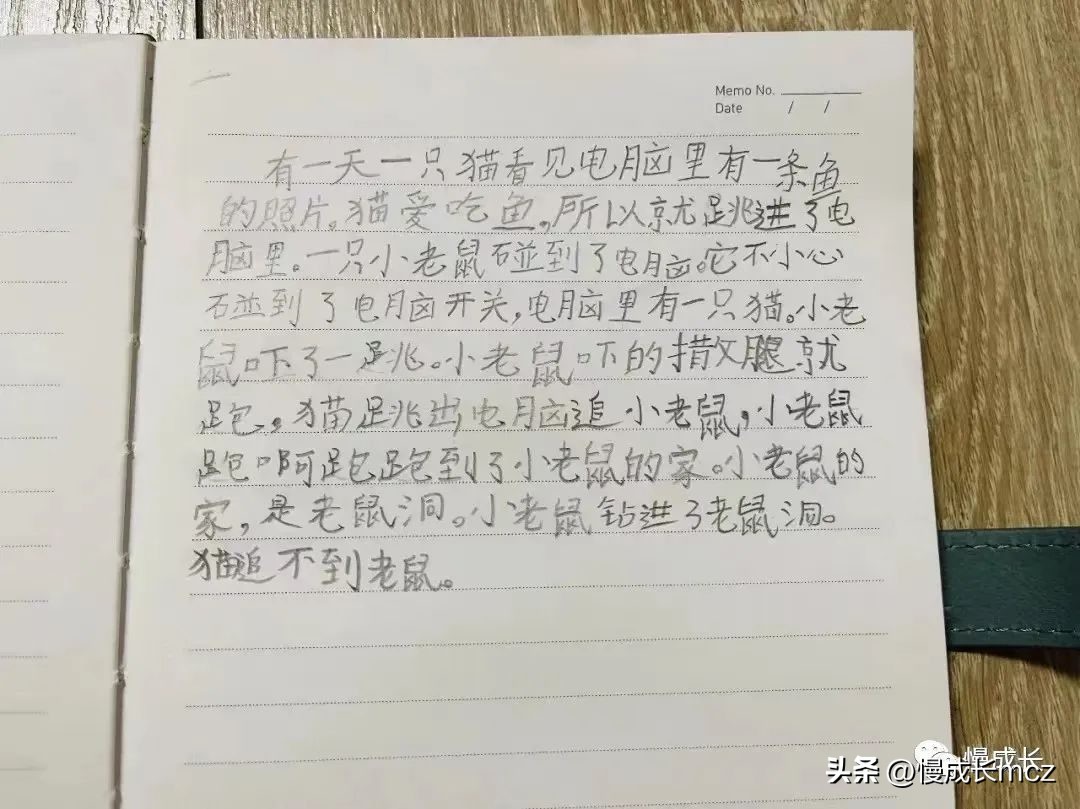 Memo No.
Date / /
有一天一只猫看见电脑里有一条鱼
的照片。猫爱吃鱼。所以就跳进了电
脑里。一只小老鼠碰到了电脑。它不小心
碰到了电脑开关,电脑里有一只猫。小老
鼠吓了一跳。小老鼠吓的撒腿就
跑。猫跳出电脑追小老鼠,小老鼠
跑啊跑跑到了小老鼠的家。小老鼠的
家,是老鼠洞。小老鼠钻进了老鼠洞。
猫追不到老鼠。
慢成长
头条 @慢成长mcz